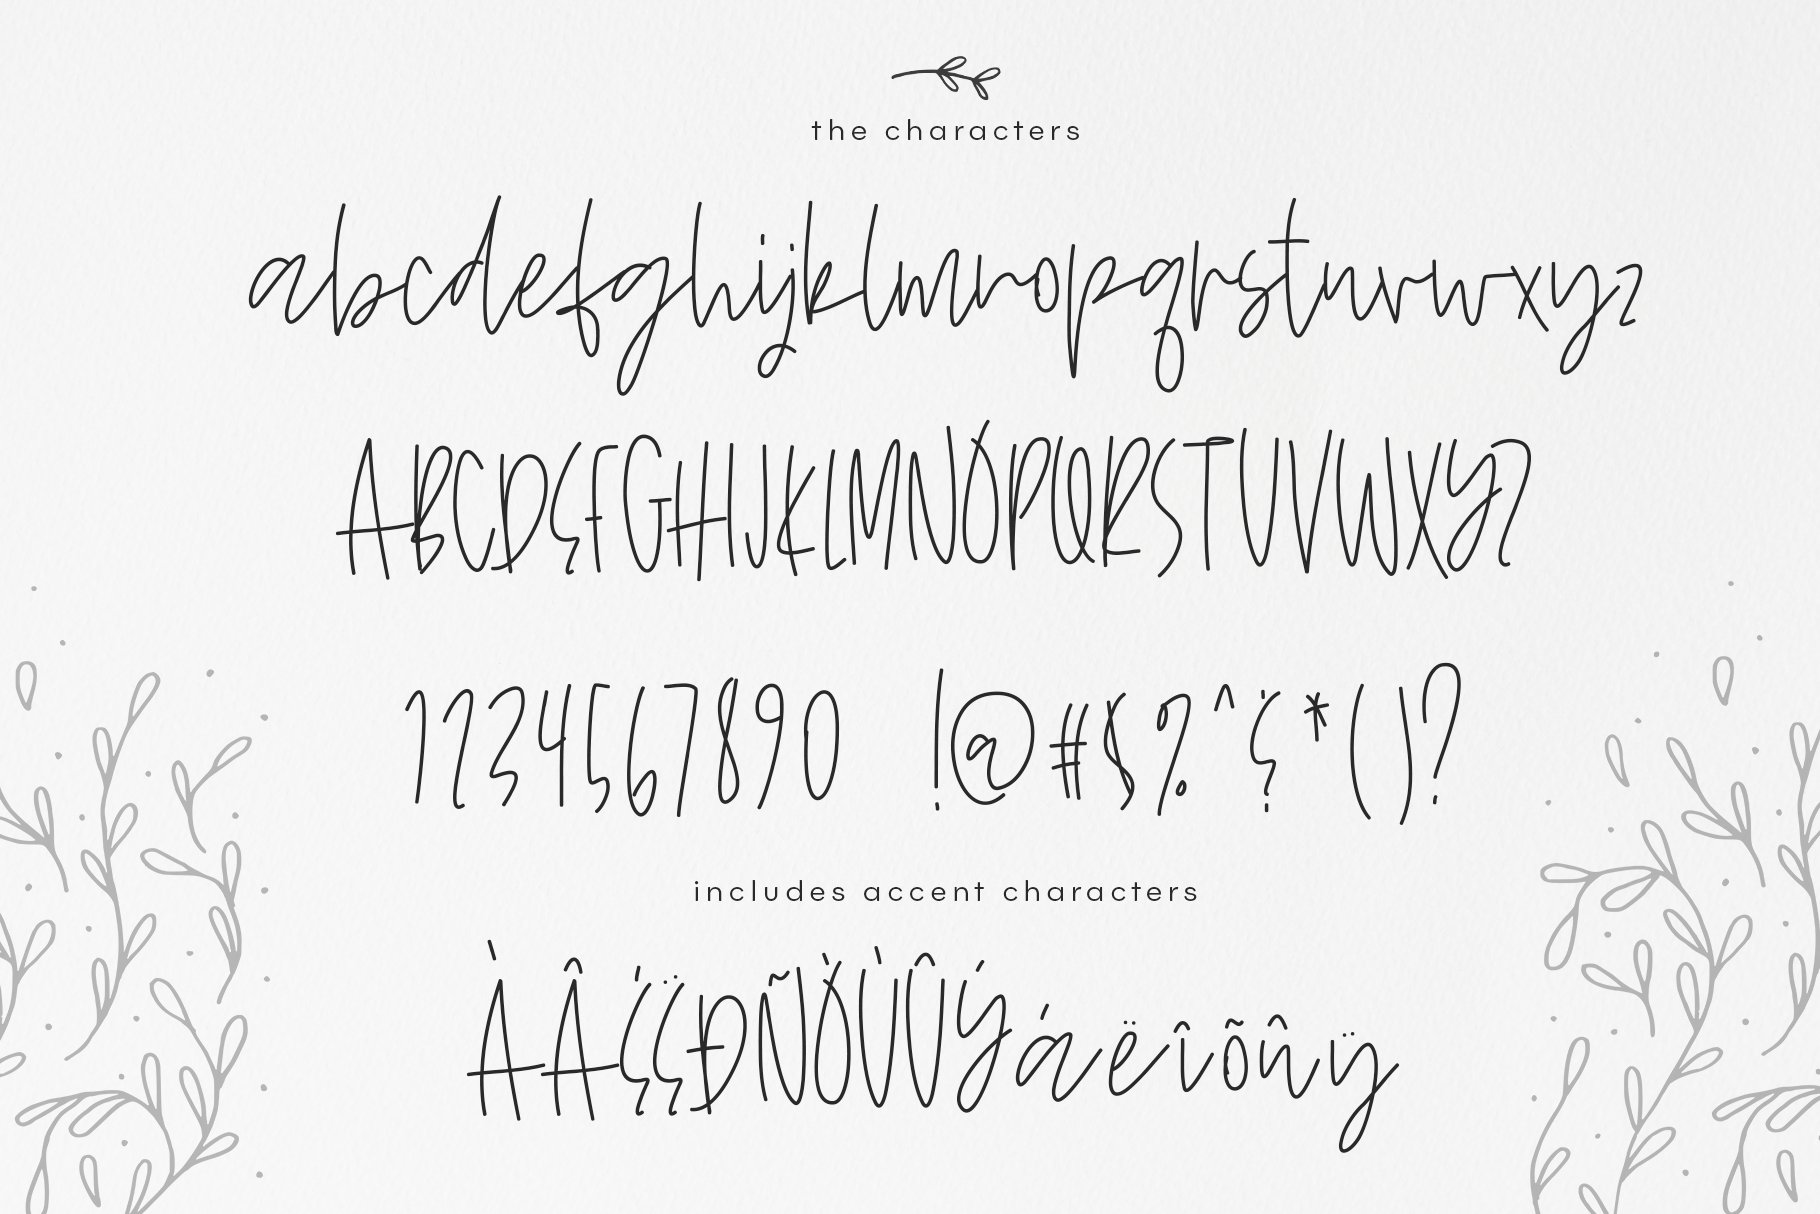 the characters
abcdefghijklmnopqrstuvwxyz
ABCDEFGHIJKLMNOPQRSTUVWXYZ
1234567890 !@#$%^&*()?
includes accent characters
ÀÂÉËÐÑÒÙÛÝáëìõûÿ